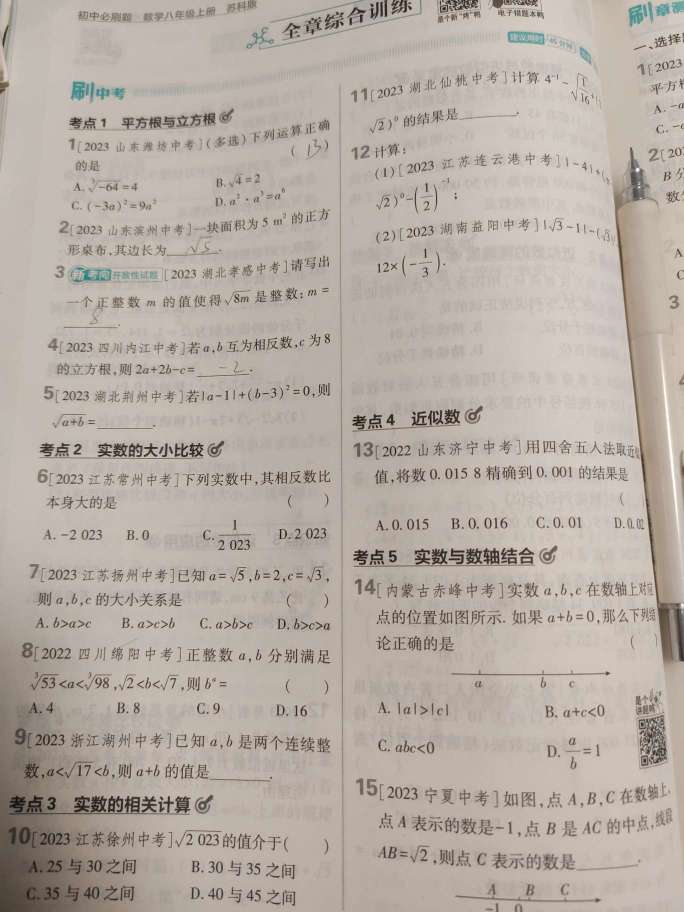 初中必刷题 数学八年级上册 苏科版
全章综合训练
建议用时
刷中考
考点1 平方根与立方根
1[2023 山东潍坊中考](多选)下列运算正确
的是 ( B )
A. ∛-64=4 B. √4=2
C. (-3a)²=9a² D. a²·a³=a⁶
2[2023 山东滨州中考]一块面积为 5 m² 的正方
形桌布,其边长为 √5 .
3 新考向 开放性试题 [2023 湖北孝感中考]请写出
一个正整数 m 的值使得 √8m 是整数: m=
8 .
4[2023 四川内江中考]若 a,b 互为相反数,c 为 8
的立方根,则 2a+2b-c= -2 .
5[2023 湖北荆州中考]若|a-1|+(b-3)²=0,则
√a+b=______.
考点2 实数的大小比较
6[2023 江苏常州中考]下列实数中,其相反数比
本身大的是 ( )
A. -2 023 B. 0 C. 1/2 023 D. 2 023
7[2023 江苏扬州中考]已知 a=√5,b=2,c=√3,
则 a,b,c 的大小关系是 ( )
A. b>a>c B. a>c>b C. a>b>c D. b>c>a
8[2022 四川绵阳中考]正整数 a,b 分别满足
∛53<a<∛98,√2<b<√7,则 bᵃ= ( )
A. 4 B. 8 C. 9 D. 16
9[2023 浙江湖州中考]已知 a,b 是两个连续整
数,a<√17<b,则 a+b 的值是______.
考点3 实数的相关计算
10[2023 江苏徐州中考]√2 023的值介于( )
A. 25 与 30 之间 B. 30 与 35 之间
C. 35 与 40 之间 D. 40 与 45 之间
电子错题本
11[2023 湖北仙桃中考]计算 4⁻¹-√1/16+(
√2)⁰ 的结果是______.
12 计算:
(1)[2023 江苏连云港中考]|-4|+(
√2)⁰-(1/2)⁻¹;
(2)[2023 湖南益阳中考]|√3-1|-(√3)
12×(-1/3).
考点4 近似数
13[2022 山东济宁中考]用四舍五入法取近
值,将数 0.015 8 精确到 0.001 的结果是
(
A. 0.015 B. 0.016 C. 0.01 D. 0.02
考点5 实数与数轴结合
14[内蒙古赤峰中考]实数 a,b,c 在数轴上对应
点的位置如图所示. 如果 a+b=0,那么下列结
论正确的是 ( )
a b c
A. |a|>|c| B. a+c<0
C. abc<0 D. a/b=1
15[2023 宁夏中考]如图,点 A,B,C 在数轴上,
点 A 表示的数是-1,点 B 是 AC 的中点,线段
AB=√2,则点 C 表示的数是______.
A B C
-1 0
刷章测
一、选择
1[2023
平方根
A. -a
C. -a
2[202
B 分
数
A
C
3